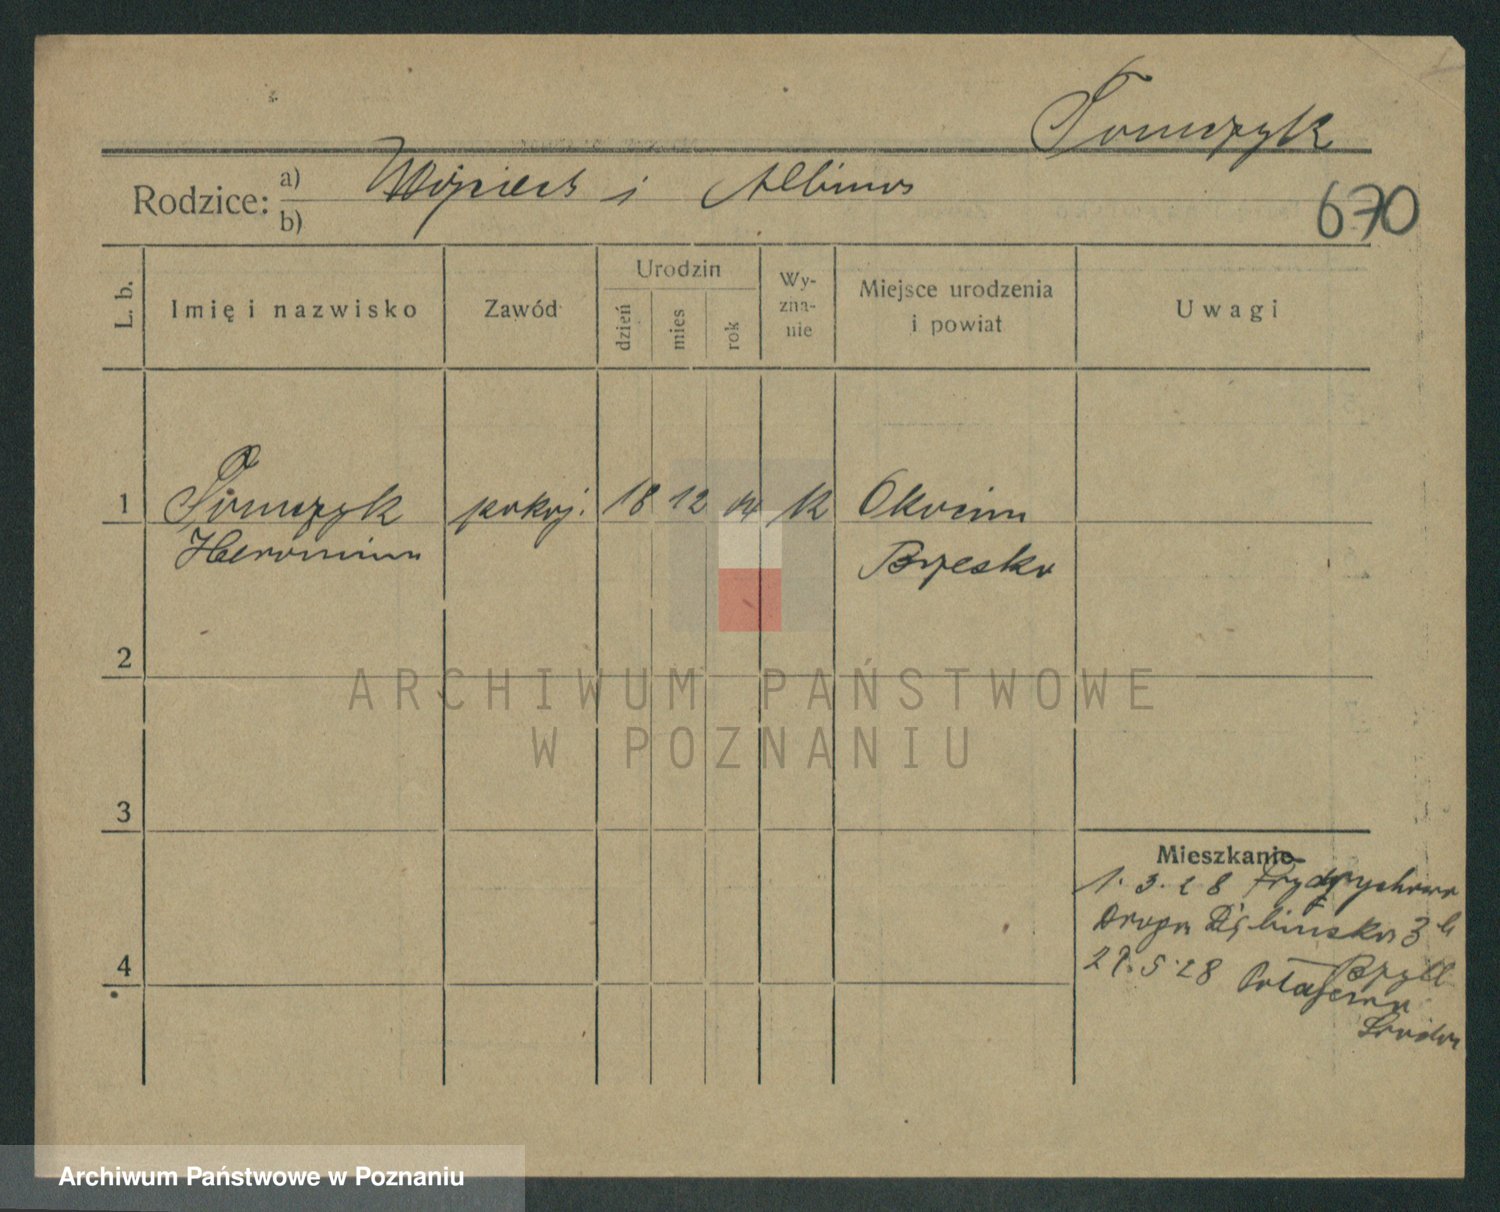 Tomczyk
Rodzice: a) Wojciech i Albina
b)
670
L. b. Imię i nazwisko Zawód Urodzin dzień mies rok Wy-zna-nie Miejsce urodzenia i powiat Uwagi
1 Tomczyk pokoj. 18 12 04 k Okocim
Hieronim Brzesko
2
ARCHIWUM PAŃSTWOWE
W POZNANIU
3
Mieszkanie
1. 3. 28
Droga Dębińska 3
4
29. 5. 28
Środa
Archiwum Państwowe w Poznaniu